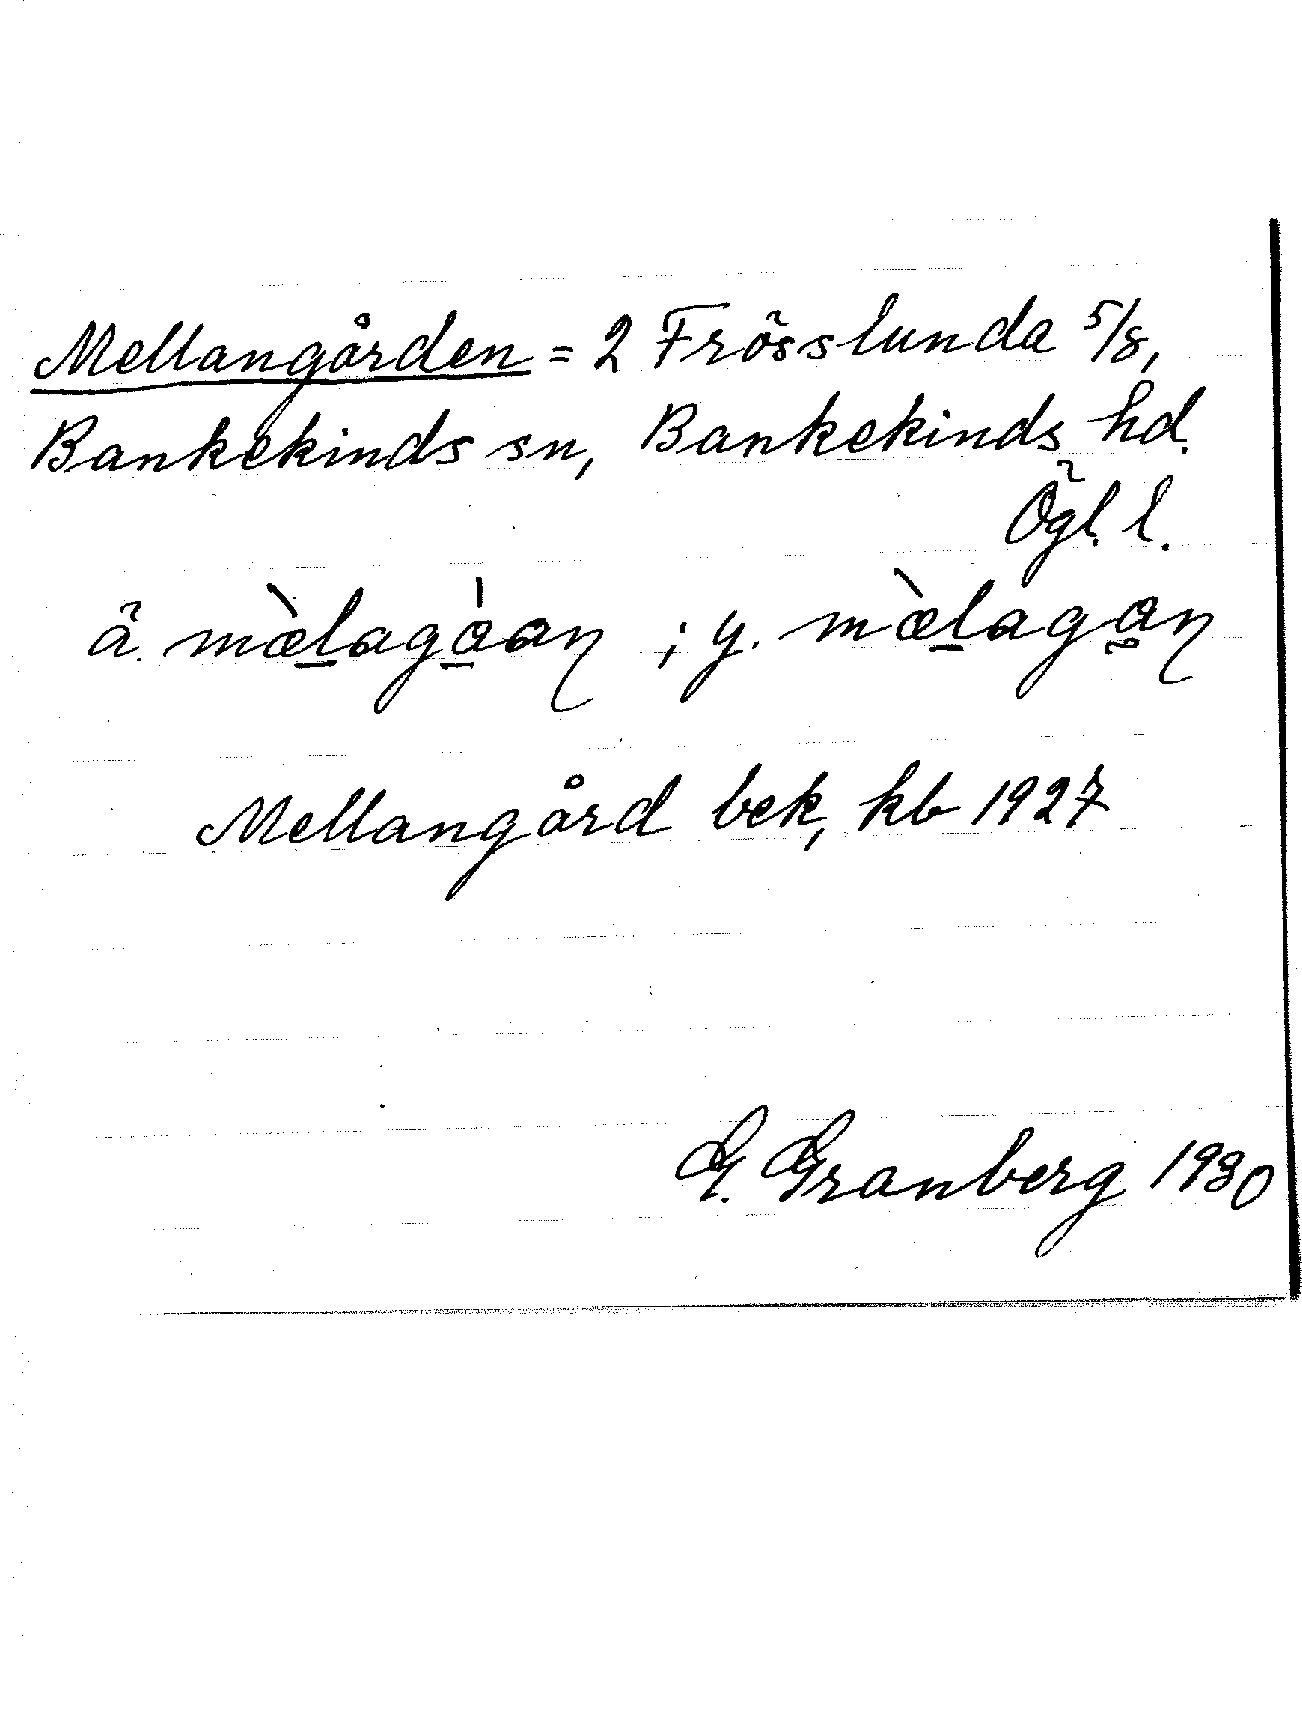 Mellangården = 2 Frösslunda 5/8,
Bankekinds sn, Bankekinds hd.
Ögl. l.
ä. mæ̀l̲agǻ̲an ; y. mæ̀l̲agan
Mellangård bek, kb 1927
G. Granberg 1930